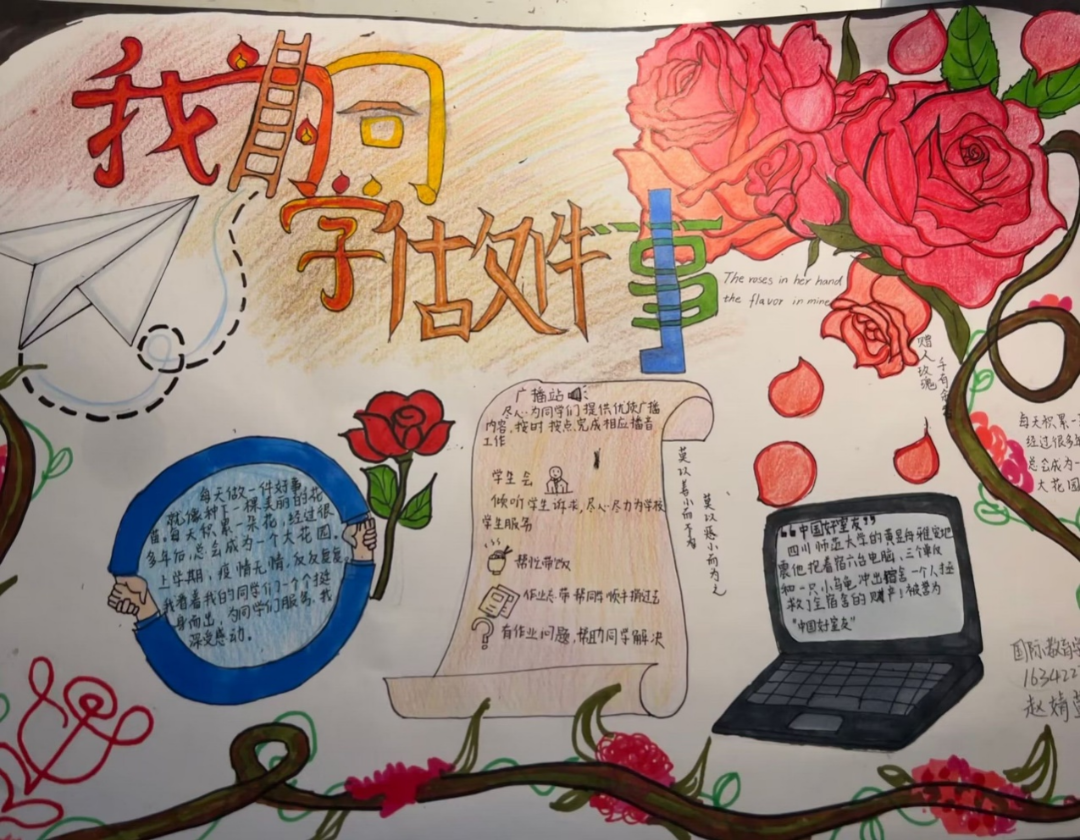 我的同
学估做件事
The roses in her hand
the flavor in mine
赠人玫瑰
手有余
广播站
尽心为同学们提供优质广播
内容,按时按点完成相应播音
工作
学生会
倾听学生诉求,尽心尽力为学校
学生服务
帮忙带饭
作业忘带帮同学顺手捎过去
有作业问题,帮助同学解决
莫以善小而不为
莫以恶小而为之
每天做一件好事,
就像种下一棵美丽的花
苗,每天积累一朵花,经过很
多年后,总会成为一个大花园。
上学期,疫情无情,反反复复,
我看着我的同学们一个个挺
身而出,为同学们服务,我
深受感动。
“中国好室友”
四川师范大学的黄昱舟雅安地
震他抱着宿六台电脑、三个单反
和一只小乌龟冲出宿舍一个人拯
救了全宿舍的财产,被誉为
“中国好室友”
每天积累一
经过很多
总会成为一
大花园
国际教育学
163422
赵婧